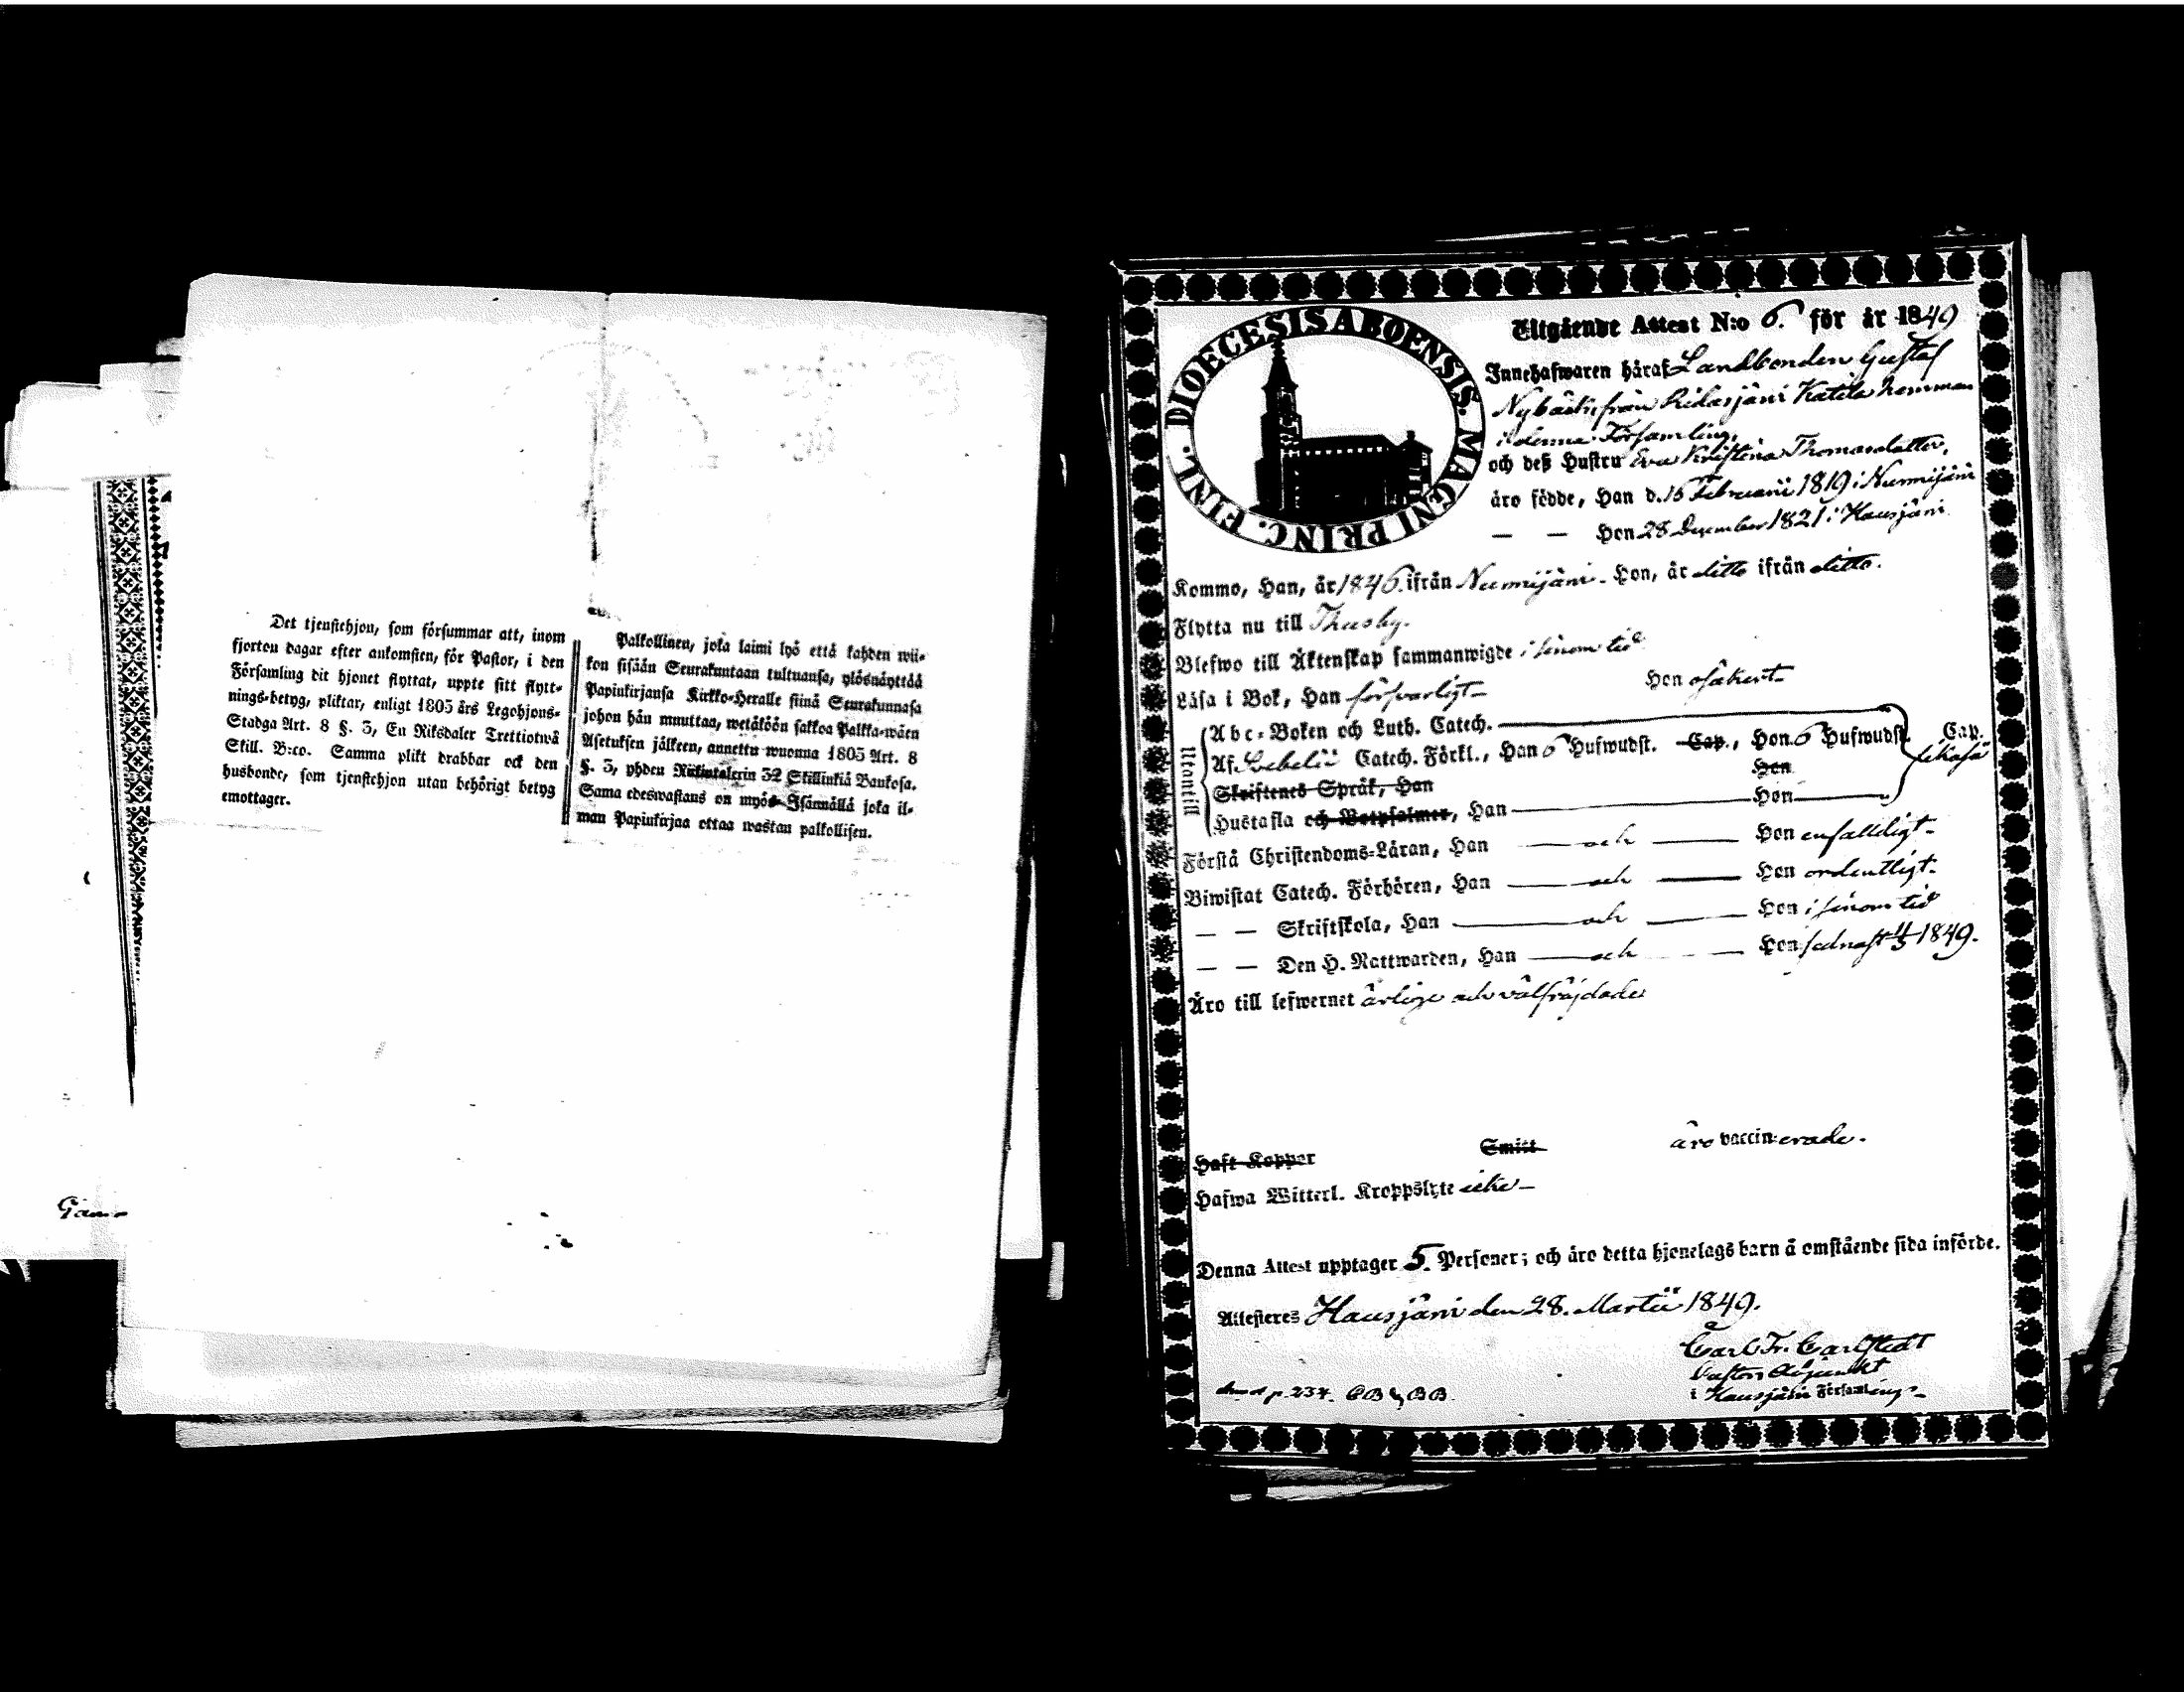 Det tjenstehjon, som försummar att, inom
fjorton dagar efter ankomsten, för Pastor, i den
Församling dit hjonet flyttat, uppte sitt flytt-
nings-betyg, pliktar, enligt 1805 års Legohjons-
Stadga Art. 8 §. 3, En Riksdaler Trettiotwå
Skill. B:co. Samma plikt drabbar ock den
husbonde, som tjenstehjon utan behörigt betyg
emottager.
Palkollinen, joka laimi lyö että kahden wii-
kon sisään Seurakuntaan tultuansa, ylösnäyttää
Papinkirjansa Kirkko-Herralle siinä Seurakunnasa
johon hän muuttaa, wetäköön sakkoa Palkka-wäen
Asetuksen jälkeen, annettu wuonna 1805 Art. 8
§. 3, yhden Riikintalerin 32 Skillinkiä Bankosa.
Sama edeswastaus on myös Isännällä joka il-
man Papinkirjaa ottaa wastan palkollisen.
DIOECESIS ABOENSIS. MAGNI PRINC. FINL.
Utgående Attest N:o 6. för år 1849
Innehafwaren häraf Landbonden Gustaf
Nybäck, från Ridasjärvi Katila hemman
i denna Församling,
och deß Hustru Eva Kristina Thomasdatter,
äro födde, Han d. 15 Februarii 1819 i Nurmijärvi
— — Hon 28 December 1821 i Hausjärvi
Kommo, Han, år 1846. ifrån Nurmijärvi. Hon, år ditto ifrån ditto.
Flytta nu till Thusby.
Blefwo till Äktenskap sammanwigde i sinom tid
Läsa i Bok, Han försvarligt Hon osäkert
Utantill
Abc-Boken och Luth. Catech.
Af Svebelii Catech. Förkl., Han 6 Hufwudst. Cap., Hon 6 Hufwudst. Cap.
likaså
Skriftenes Språk, Han Hon
Hustafla och Botpsalmer, Han Hon
Förstå Christendoms-Läran, Han — och — Hon enfaldigt
Biwistat Catech. Förhören, Han — och — Hon ordentligt.
— — Skriftskola, Han — och — Hon i sinom tid
— — Den H. Nattwarden, Han — och — Hon sednast 4/3 1849.
Äro till lefwernet ärlige och välfräjdade
Haft Koppor Smitt äro vaccinerade.
Hafwa Witterl. Kroppslyte icke
Denna Attest upptager 5. Personer; och äro detta hjonelags barn å omstående sida införde.
Attesteres Hausjärvi den 28. Martii 1849.
Carl Fr. Carlstedt
Pastors Adjunkt
i Hausjärvi Församling
p. 234. CB & BB.